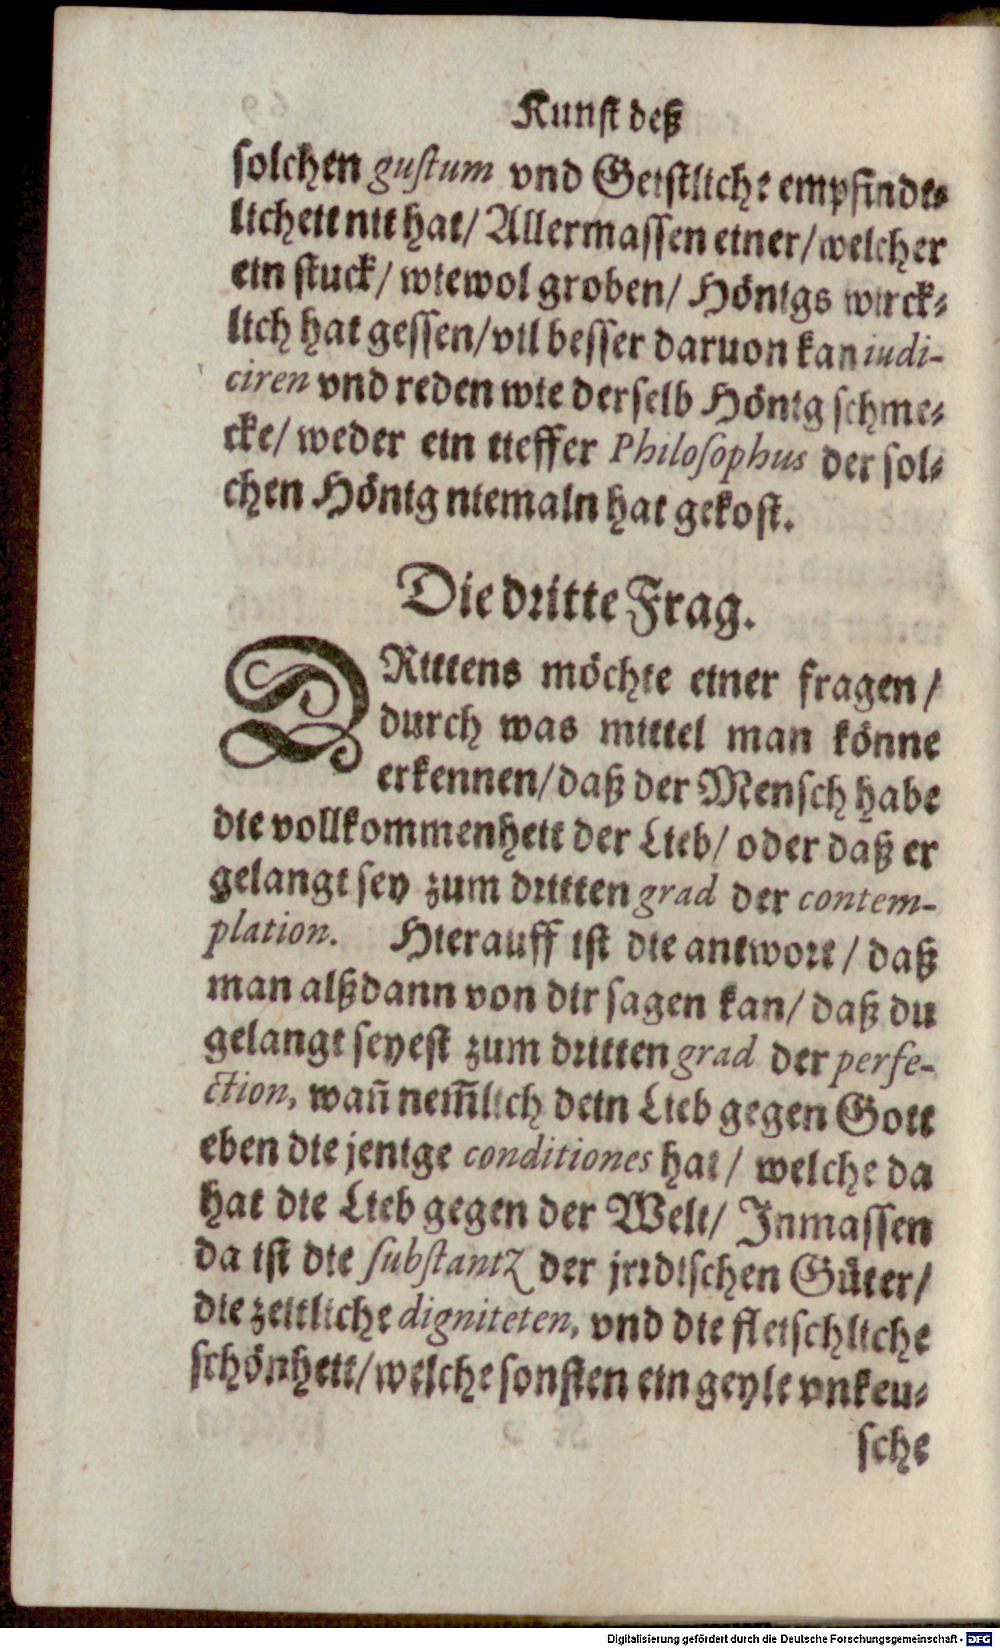 Kunst deß
solchen gustum vnd Geistliche empfind-
lichett nit hat/ Allermassen einer/ welcher
ein stuck/ wiewol groben/ Hönigs wirck-
lich hat gessen/ vil besser daruon kan iudi-
ciren vnd reden wie derselb Hönig schme-
cke/ weder ein tieffer Philosophus der sol-
chen Hönig niemaln hat gekost.
Die dritte Frag.
DRittens möchte einer fragen/
durch was mittel man könne
erkennen/ daß der Mensch habe
die vollkommenheit der Lieb/ oder daß er
gelangt sey zum dritten grad der contem-
plation. Hierauff ist die antwort/ daß
man alßdann von dir sagen kan/ daß du
gelangt seyest zum dritten grad der perfe-
ction, wañ nem̃lich dein Lieb gegen Gott
eben die jenige conditiones hat/ welche da
hat die Lieb gegen der Welt/ Inmassen
da ist die substantz der jrdischen Güter/
die zeitliche digniteten, vnd die fleischliche
schönheit/ welche sonsten ein geyle vnkeu-
sche
Digitalisierung gefördert durch die Deutsche Forschungsgemeinschaft - DFG